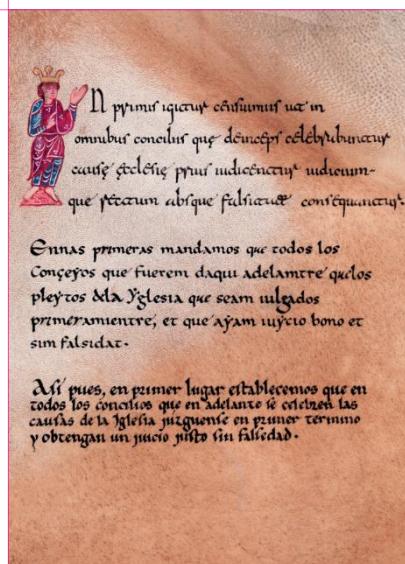 IN primis igitur censuimus ut in
omnibus conciliis quę deinceps celebrabuntur
causę ecclesię prius iudicentur iudicium-
que rectum absque falsitate consequantur.
Ennas primeras mandamos que todos los
Conçeyos que fuerem daqui adelamtre que los
pleytos dela Yglesia que seam iulgados
primeramientre, et que ayam iuycio bono et
sim falsidat.
Asi pues, en primer lugar establecemos que en
todos los concilios que en adelante se celebren las
causas de la Iglesia juzguense en primer termino
y obtengan un juicio justo sin falsedad.